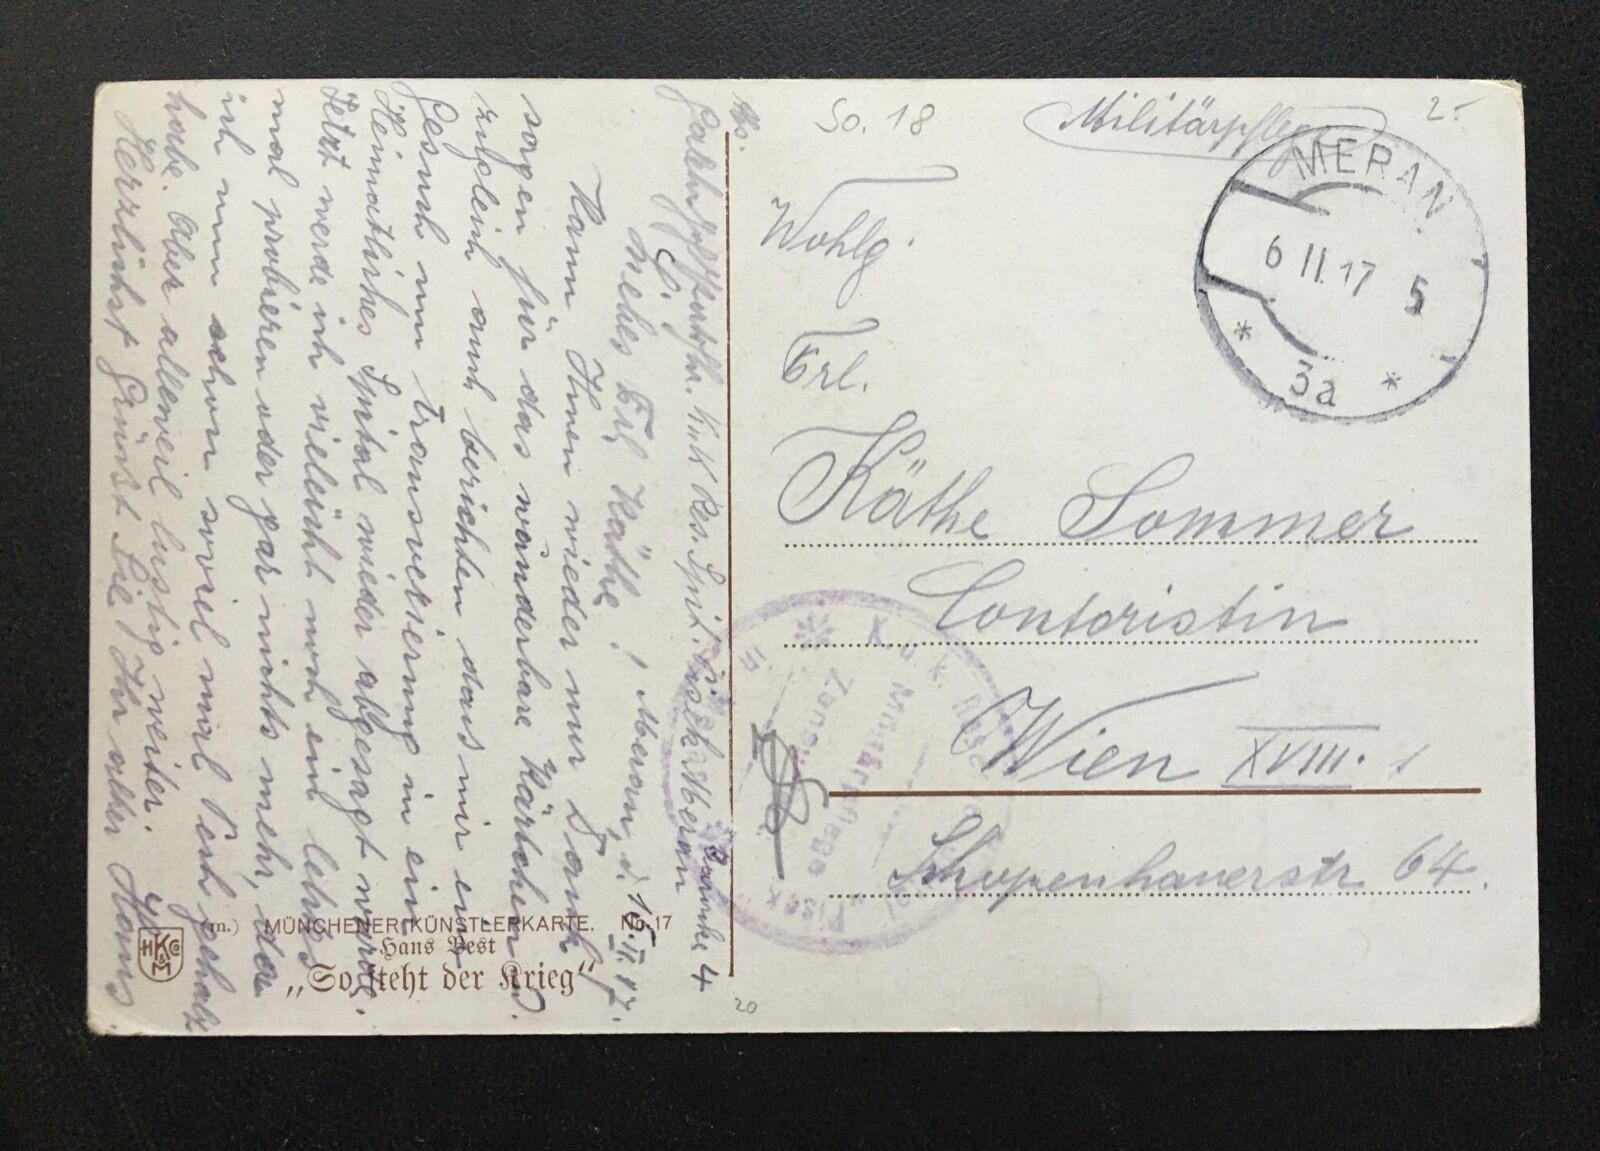 Militärpflege
2.-
So. 18
MERAN.
6 II. 17 5
* 3a *
Wohlg.
Frl.
Käthe Sommer
Contoristin
Wien XVIII.
Schopenhauerstr 64.
K. u. k. Reservespital
Militärpflege
in
K.u.K. Res. Spit. Pisek Meran
Baracke 4
Meran, d. 16. II. 17.
Liebes Frl. Käthe!
Kann Ihnen wieder nur Dank
sagen für das wünderbare Kärtchen u.
zugleich auch berichten dass mir ein
Gesuch um Transverierung in ein
Heimatliches Spital wieder abgesagt wurde.
Jetzt werde ich vieleicht noch ein letzes
mal probieren oder gar nichts mehr, da
ich nun schon soviel mal Pech gehabt
habe. Aber alleweil lustig weiter.
Herzlichst Grüsst Sie Ihr alter Hans.
(m.) MÜNCHENER KÜNSTLERKARTE. No. 17
Hans Best
„So steht der Krieg“
HKCo
M
20